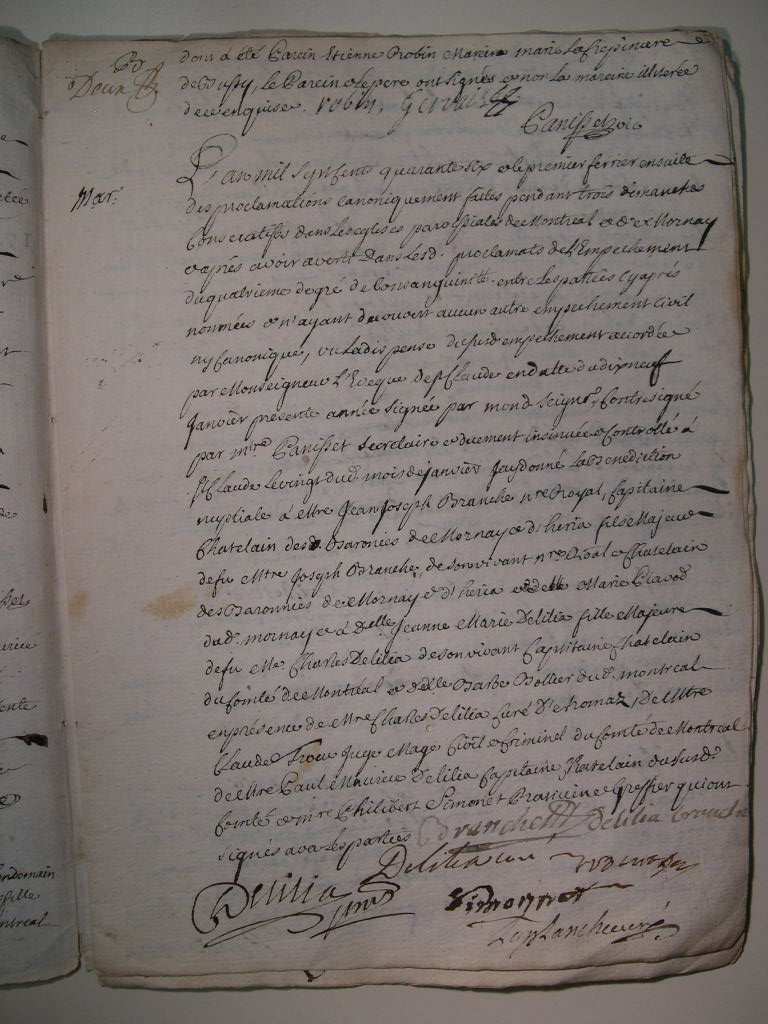 doux a été Parein Etienne Robin Mareine marie
de Bussy, le Parein & le pere ont signés & non la mareine illiterée
de ce enquise. robin, Gervais
Canisset vic.
Mar.
L'an mil sept cent quarante six & le premier fevrier ensuite
des proclamations canoniquement faites pendant trois dimanches
consecutifs dans les eglises paroissiales de Montreal & de Mornay
& après avoir averti dans lesd. proclamats de l'Empechement
du quatrieme degré de Consanguinité entre les parties cy après
nommées & n'ayant decouvert aucun autre empechement civil
ny canonique, vu la dispense dususd. empechement accordée
par Monseigneur l'Eveque de St Claude en datte du dix neuf
Janvier presente année signée par mond. Seignr. Contresigné
par mtre Canisset secretaire & duement insinuée & controllé a
St Claude le vingt dud. mois de janvier jay donné la Benediction
nuptiale a Mtre Jean Joseph Branche nre Royal, Capitaine
Chatelain des Baronies de Mornay & d'heria fils Majeur
de fu Mtre Joseph Branche, de son vivant nre Roial & Chatelain
des Baronnies de Mornay & d'heria & de delle Marie
dud. mornay & à Delle Jeanne Marie Delilia fille Majeure
de fu Mtre Charles Delilia de son vivant Capitaine Chatelain
du Comté de Montréal & de delle Barbe Bollier dud. montreal
en présence de Mtre Charles Delilia curé d'etromaz, de Mtre
Claude Juge Mage Civil & Criminel du Comté de Montreal
de Mtre Paul Maurice Delilia Capitaine Chatelain du susd.
Comté & mre Philibert Simonet Praticien & Greffier qui ont
signés avec les parties Branche Delilia
Delilia curé
Delilia
Simonnet